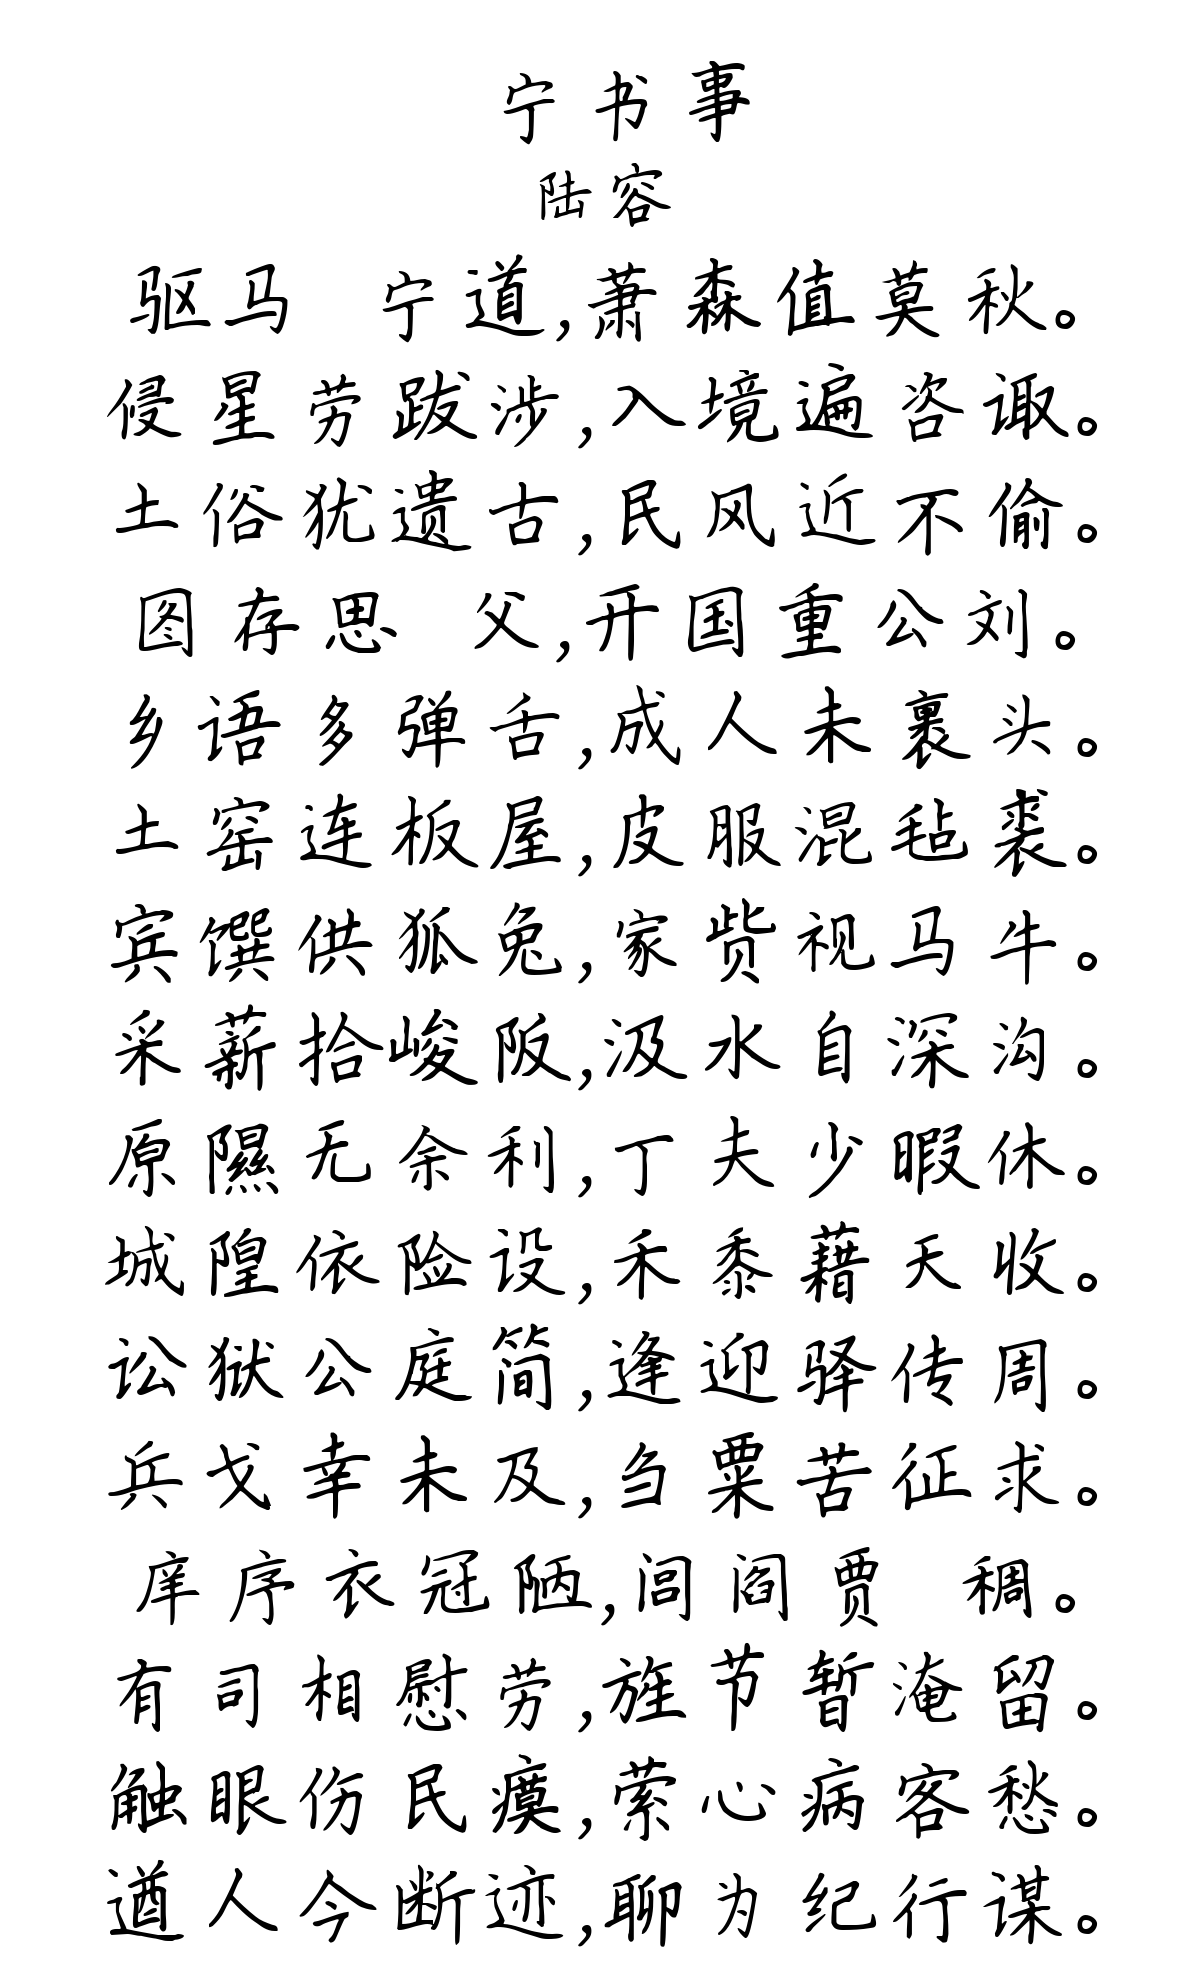 宁书事
陆容
驱马 宁道,萧森值莫秋。
侵星劳跋涉,入境遍咨诹。
土俗犹遗古,民风近不偷。
图存思 父,开国重公刘。
乡语多弹舌,成人未裹头。
土窑连板屋,皮服混毡裘。
宾馔供狐兔,家赀视马牛。
采薪拾峻阪,汲水自深沟。
原隰无余利,丁夫少暇休。
城隍依险设,禾黍藉天收。
讼狱公庭简,逢迎驿传周。
兵戈幸未及,刍粟苦征求。
庠序衣冠陋,闾阎贾 稠。
有司相慰劳,旌节暂淹留。
触眼伤民瘼,萦心病客愁。
遒人今断迹,聊为纪行谋。